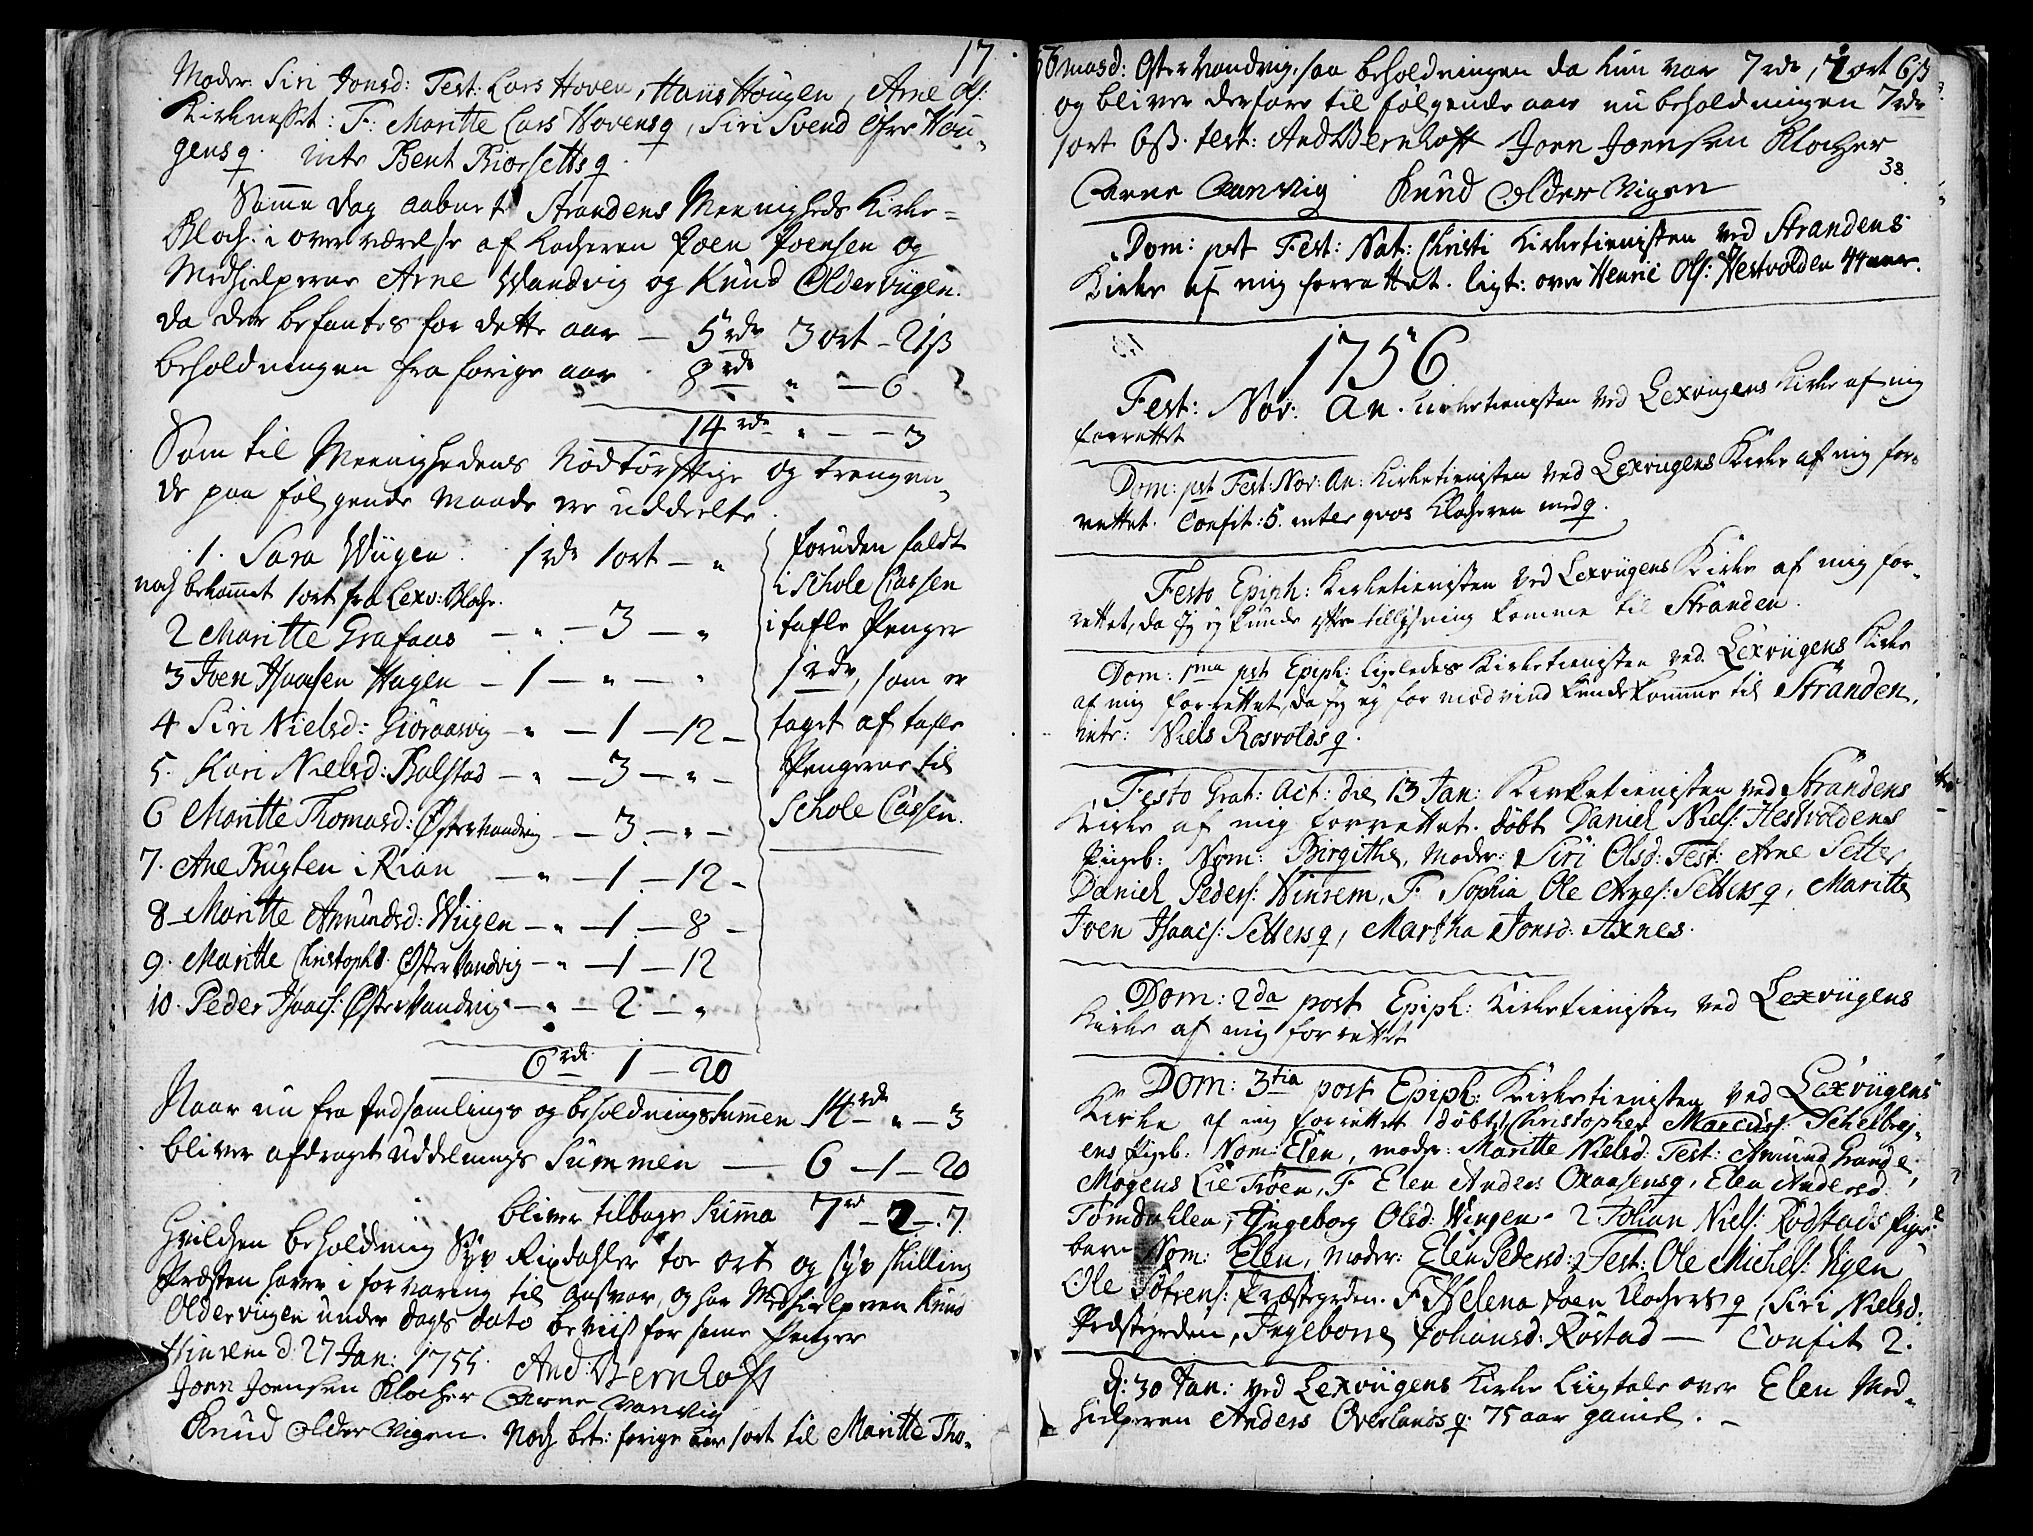 17.
Moder Siri Jonsd: Test: Lars Hoven, Hans Hougen, Arne Ols:
Kirknesset: F: Maritte Lars Hovensq, Siri Svend Hou=
gensq. intr Bent Biorsettsq.
Samme dag aabnet Strandens Meenigheds Kirke=
Bloch: i overværelse af Klocheren Joen Joensen og
Medhielperne Arne Wandvig og Knud Oldervügen.
da der befantes for dette aar — 5 rdr 3 ort - 21 ß
beholdningen fra forige aar 8 rdr " — 6
14 rdr " — 3
Som til Meenighedens Nødtørftige og trengen=
de paa følgende maade er uddeelte.
1. Sara Wügen. 1 rdr 1 ort - "
noch bekommet 1 ort fra Lexv: Bloch.
2 Maritte Grafaas — " — 3 — "
3 Joen Isaacsen Hagen — 1 — " — "
4 Siri Nielsd: Giöraasvig — " — 1 — 12 —
5. Kari Nielsd: Balstad — " — 3 — " —
6 Maritte Thomasd: Østervandvig — 3 — " —
7. Ane Bugten i Rian — " — 1 — 12 —
8 — Maritte Amundsd: Wügen — " — 1 — 8 —
9. Maritte Christophd. Østervandvig — " — 1 — 12
10. Peder Isaacs: Østervandvig — " — 2 — "
6 rdr 1 — 20
foruden faldt
i Schole Cassen
i tafle Penger
1 rdr, som er
taget af tafle
Pengerne til
Schole Cassen.
Naar nu fra Indsamlings og beholdnings Summen 14 rdr " — 3
bliver afdraget uddelnings Summen — 6 — 1 — 20
bliver tilbage Summa 7 rd — 2 — 7.
Hvilchen beholdning Syv Rixdahler toe ort og syv skilling
Præsten haver i forvaring til ansvar, og har Medhielperen Knud
Oldervügen under dags dato beviis for samme Penger
Hindrem d. 27 Jan: 1755. And. Bernhoft
Joen Joensen Klocher Arne Vanvig
Knud Older Vigen. Noch bet: forige aar 1 ort til Maritte Tho=
masd: Østervandvig, saa beholdningen da kun var 7 rdr, 1 ort 6 ß
og bliver derfore til følgende aar nu beholdningen 7 rdr
1 ort 6 ß. test: And Bernhoft Joen Joensen Klocher
38.
Arne Vanvig Knud Older Vigen
Dom: pst Fest: Nat: Christi Kirketienisten ved Strandens
Kirke af mig forrettet. ligt: over Henric Ols: Hestvolden 44 aar.
1756
Fest: Nov: An. Kirketienisten ved Lexvügens Kirke af mig
forrettet
Dom: pst Fest: Nov: An: Kirketienisten ved Lexvügens Kirke af mig for=
rettet. Confit: 5. inter quos Klocheren medq.
Festo Epiph: Kirketienisten ved Lexvügens Kirke af mig for=
rettet, da jeg ey kunde efter tillysning komme til Stranden.
Dom: 1ma pst Epiph: ligeledes Kirketienisten ved Lexvügens Kirke
af mig forrettet, da jeg ey for modvind kunde komme til Stranden.
intr: Niels Rosvoldsq.
Festo Grat: Act: die 13 Jan: Kirketienisten ved Strandens
Kirke af mig forrettet. døbt Daniel Niels: Hestvoldens
Pigeb: Nom: Birgithe, Moder: Siri Olsd: Test: Arne Setter
Daniel Peders: Hinrem, F. Sophia Ole Arnes: Settersq, Maritte
Joen Isaacs: Settersq, Martha Jonsd: Axnes.
Dom: 2da post Epiph: Kirketienisten ved Lexvügens
Kirke af mig forrettet
Dom: 3tia post Epiph: Kirketienisten ved Lexvügens
Kirke af mig forrettet døbt 1 Christopher Marcus: Schelbrej=
ens Pigeb: Nom: Elen, moder: Maritte Nielsd: Test: Amund Grande,
Mogens Lie Trøen, F Elen Anders Oxaasensq, Elen Andersd:
Tømdahlen, Ingeborg Olsd: Wingen. 2 Johan Niels: Rødstads Pige=
barn Nom: Elen, moder: Elen Pedersd: Test: Ole Michels: Vigen
Ole Søfrens: Præstgrden. F Helena Joen Klochersq, Siri Nielsd:
Præstgrden, Ingebore Johansd: Røstad — Confit 2.
d: 30 Jan: ved Lexvügens Kirke Liigtale over Elen Med=
hielperen Anders Overlandsq. 75 aar gamel. —